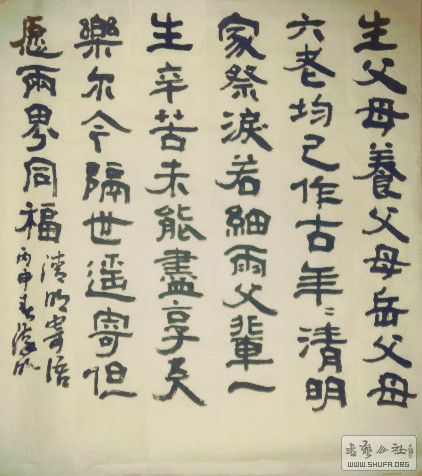 生父母養父母岳父母
六老均已作古年〻清明
家祭淚若細雨父輩一
生辛苦未能盡享天
樂尔今隔世遥寄但
愿兩界同福
清明寄语
丙申春
书艺公社
WWW.SHUFA.ORG